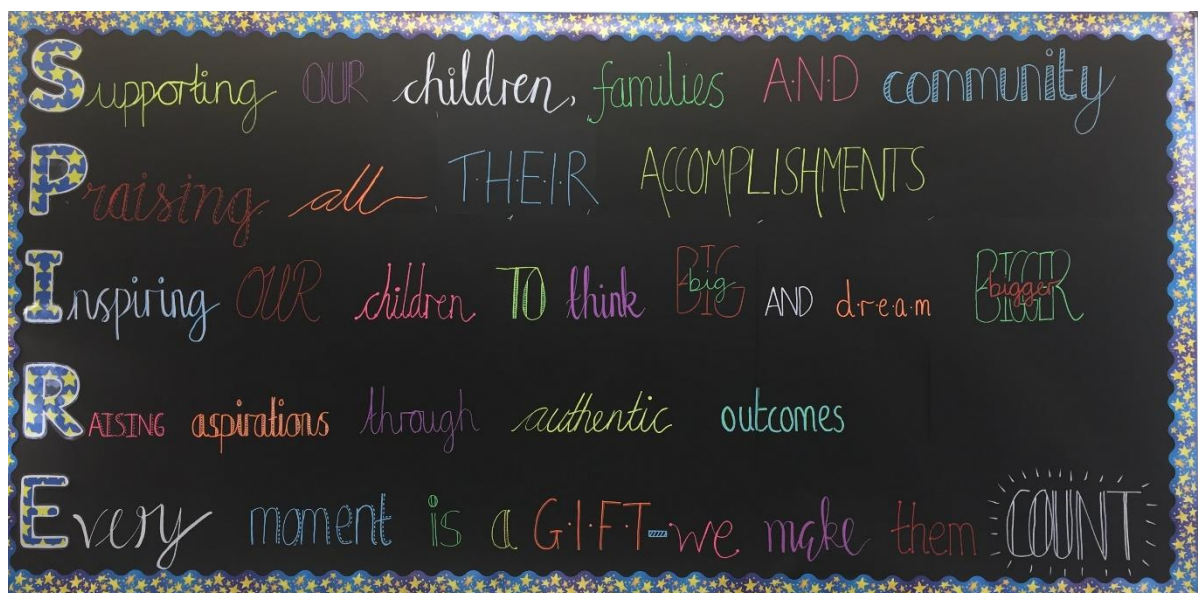 Supporting OUR children, families AND community
Praising all THEIR ACCOMPLISHMENTS
Inspiring OUR children TO think BIG big AND dream BIGGER bigger
RAISING aspirations through authentic outcomes
Every moment is a GIFT-we make them COUNT